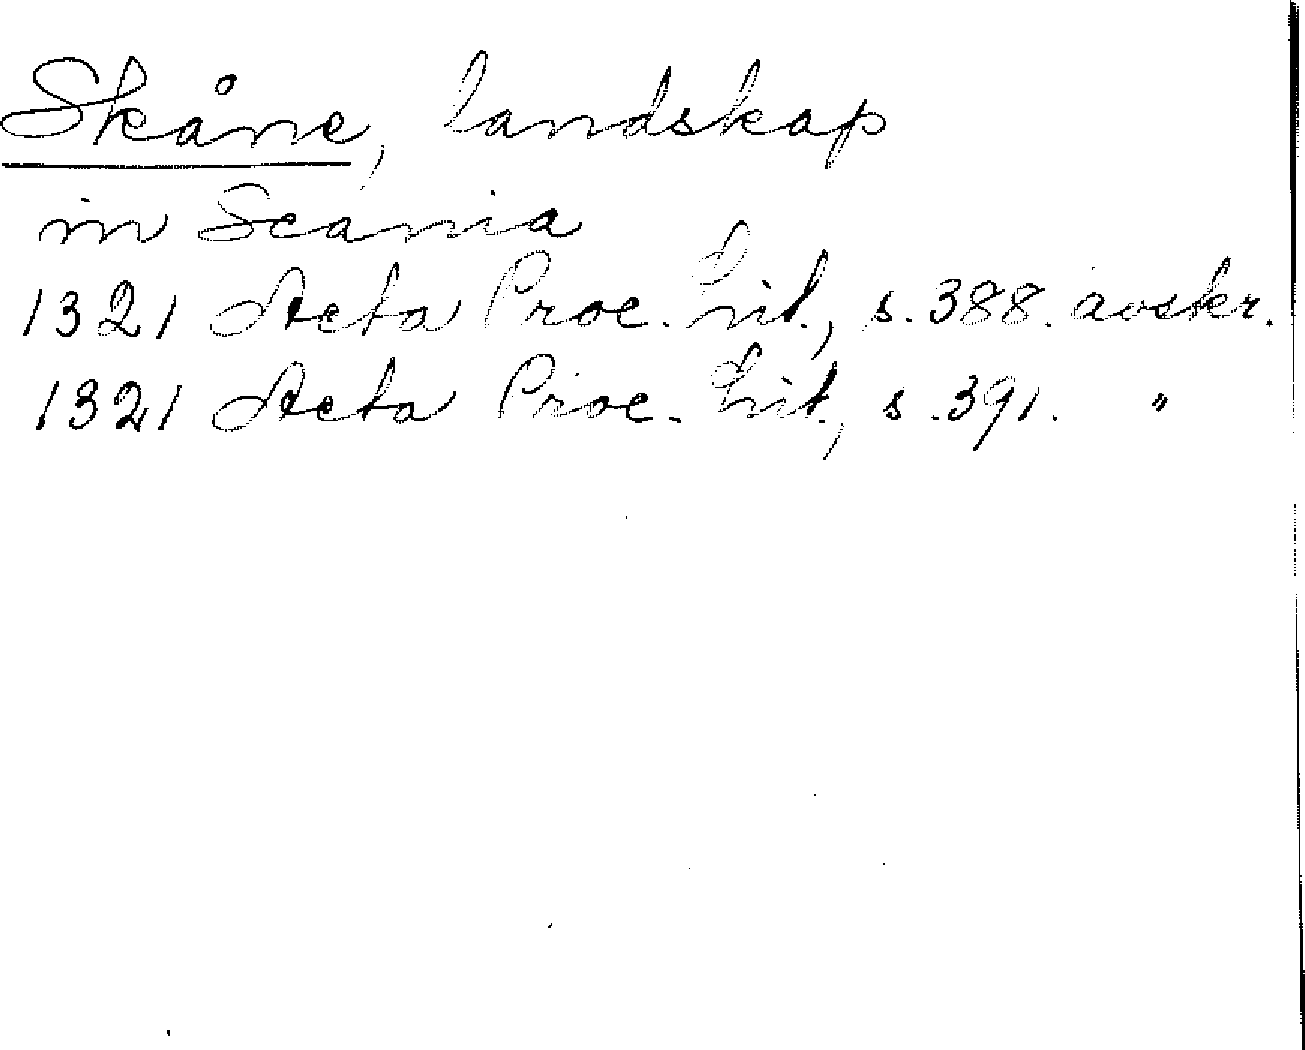 Skåne, landskap
in Scania
1321 Acta Proc. Lit., s. 388. avskr.
1321 Acta Proc. Lit., s. 391. "